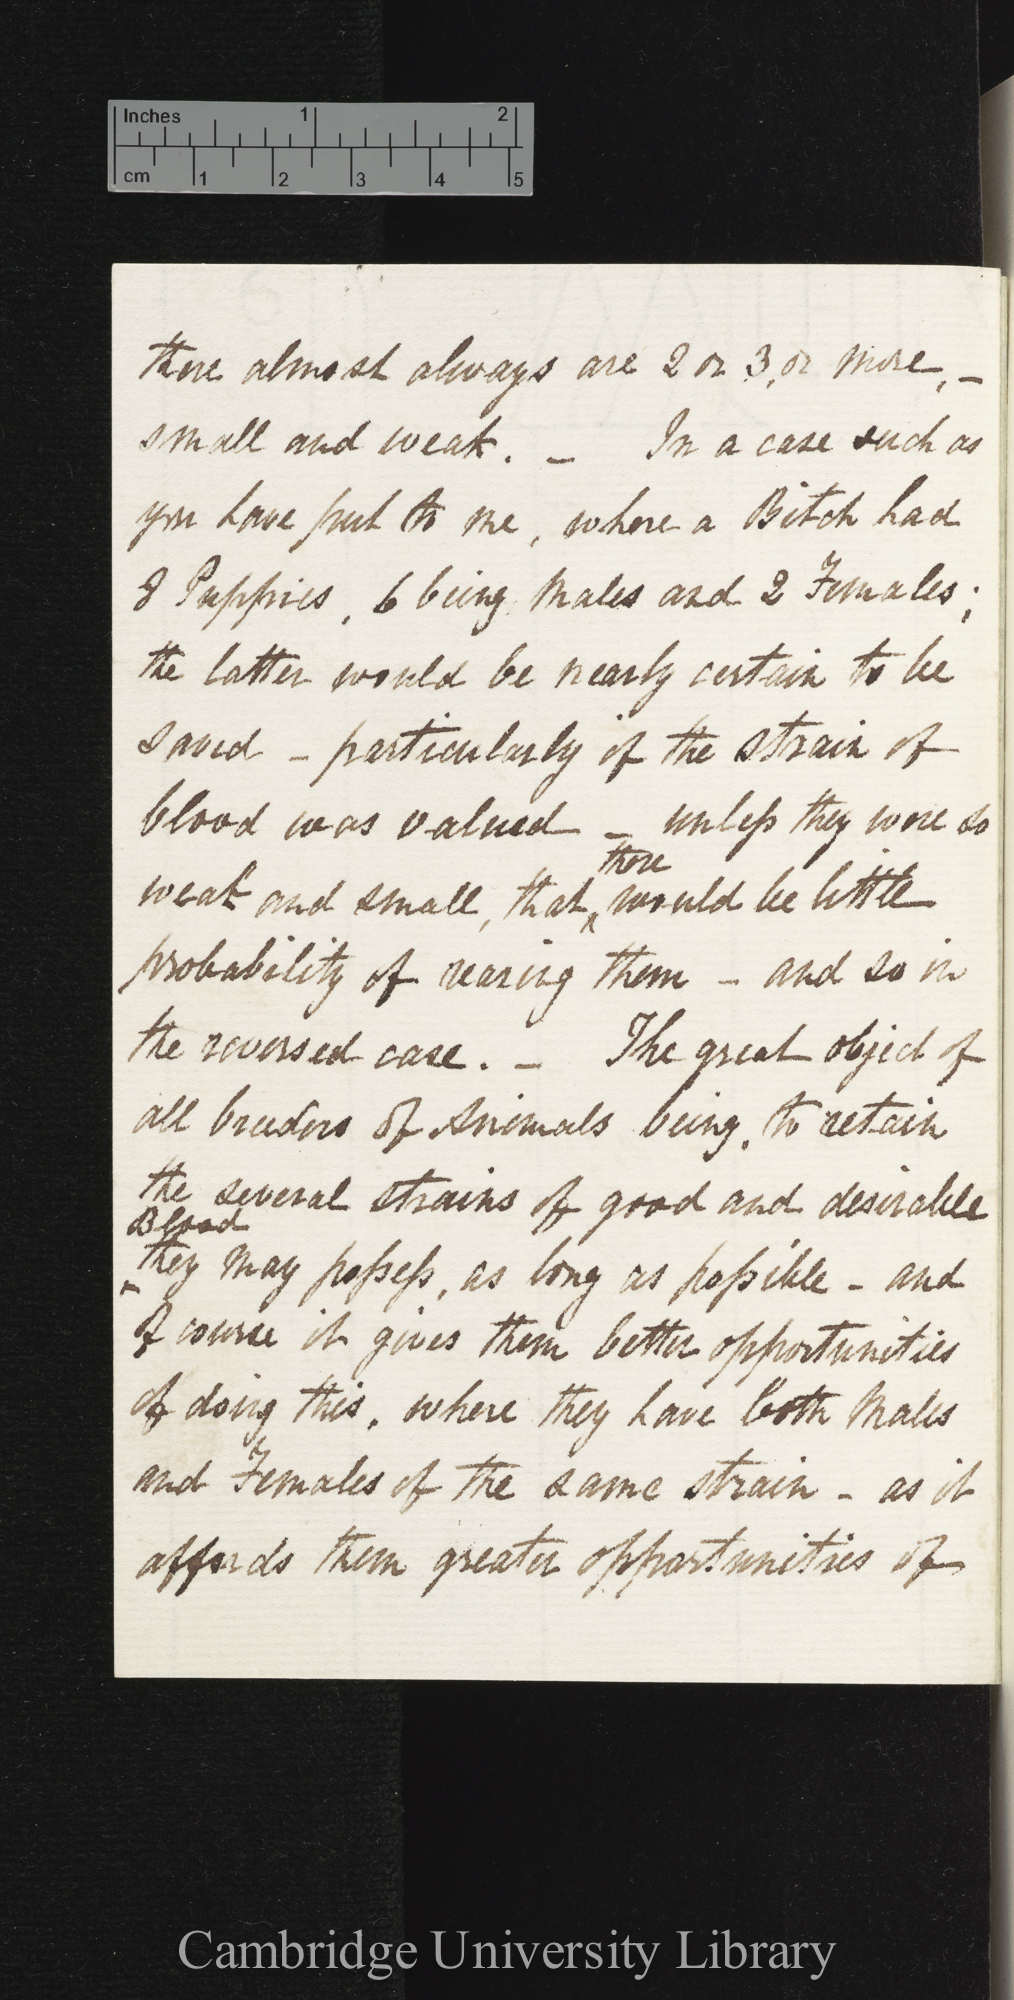 Inches 1 2
cm 1 2 3 4 5
there almost always are 2 or 3, or more, –
small and weak. – In a case such as
you have put to me, where a Bitch had
8 Puppies, 6 being Males and 2 Females;
the latter would be nearly certain to be
saved – particularly if the strain of
blood was valued – unleſs they were so
there
weak and small, that ‸ would be little
probability of rearing them – and so in
the reversed case. – The great object of
all breeders of Animals being, to retain
the several strains of good and desirable
Blood
‸ they may poſseſs, as long as poſsible – and
of course it gives them better opportunities
of doing this, where they have both Males
and Females of the same strain – as it
affords them greater opportunities of
Cambridge University Library